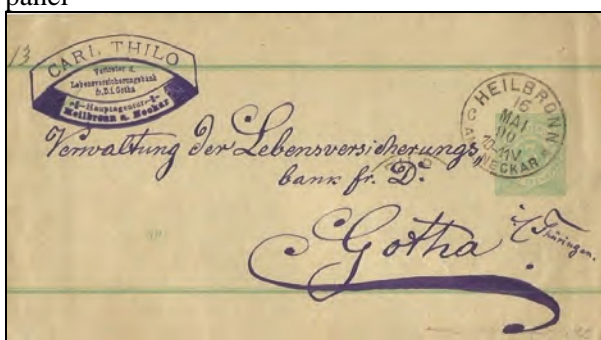 13
CARL THILO
Vertreter d.
Lebensversicherungsbank
fr. D. i. Gotha
Hauptagentur
Heilbronn a. Neckar
HEILBRONN
16
MAI
90
10-11V
NECKAR
Verwaltung der Lebensversicherungs„
bank fr. D.
Gotha
i/Thüringen.